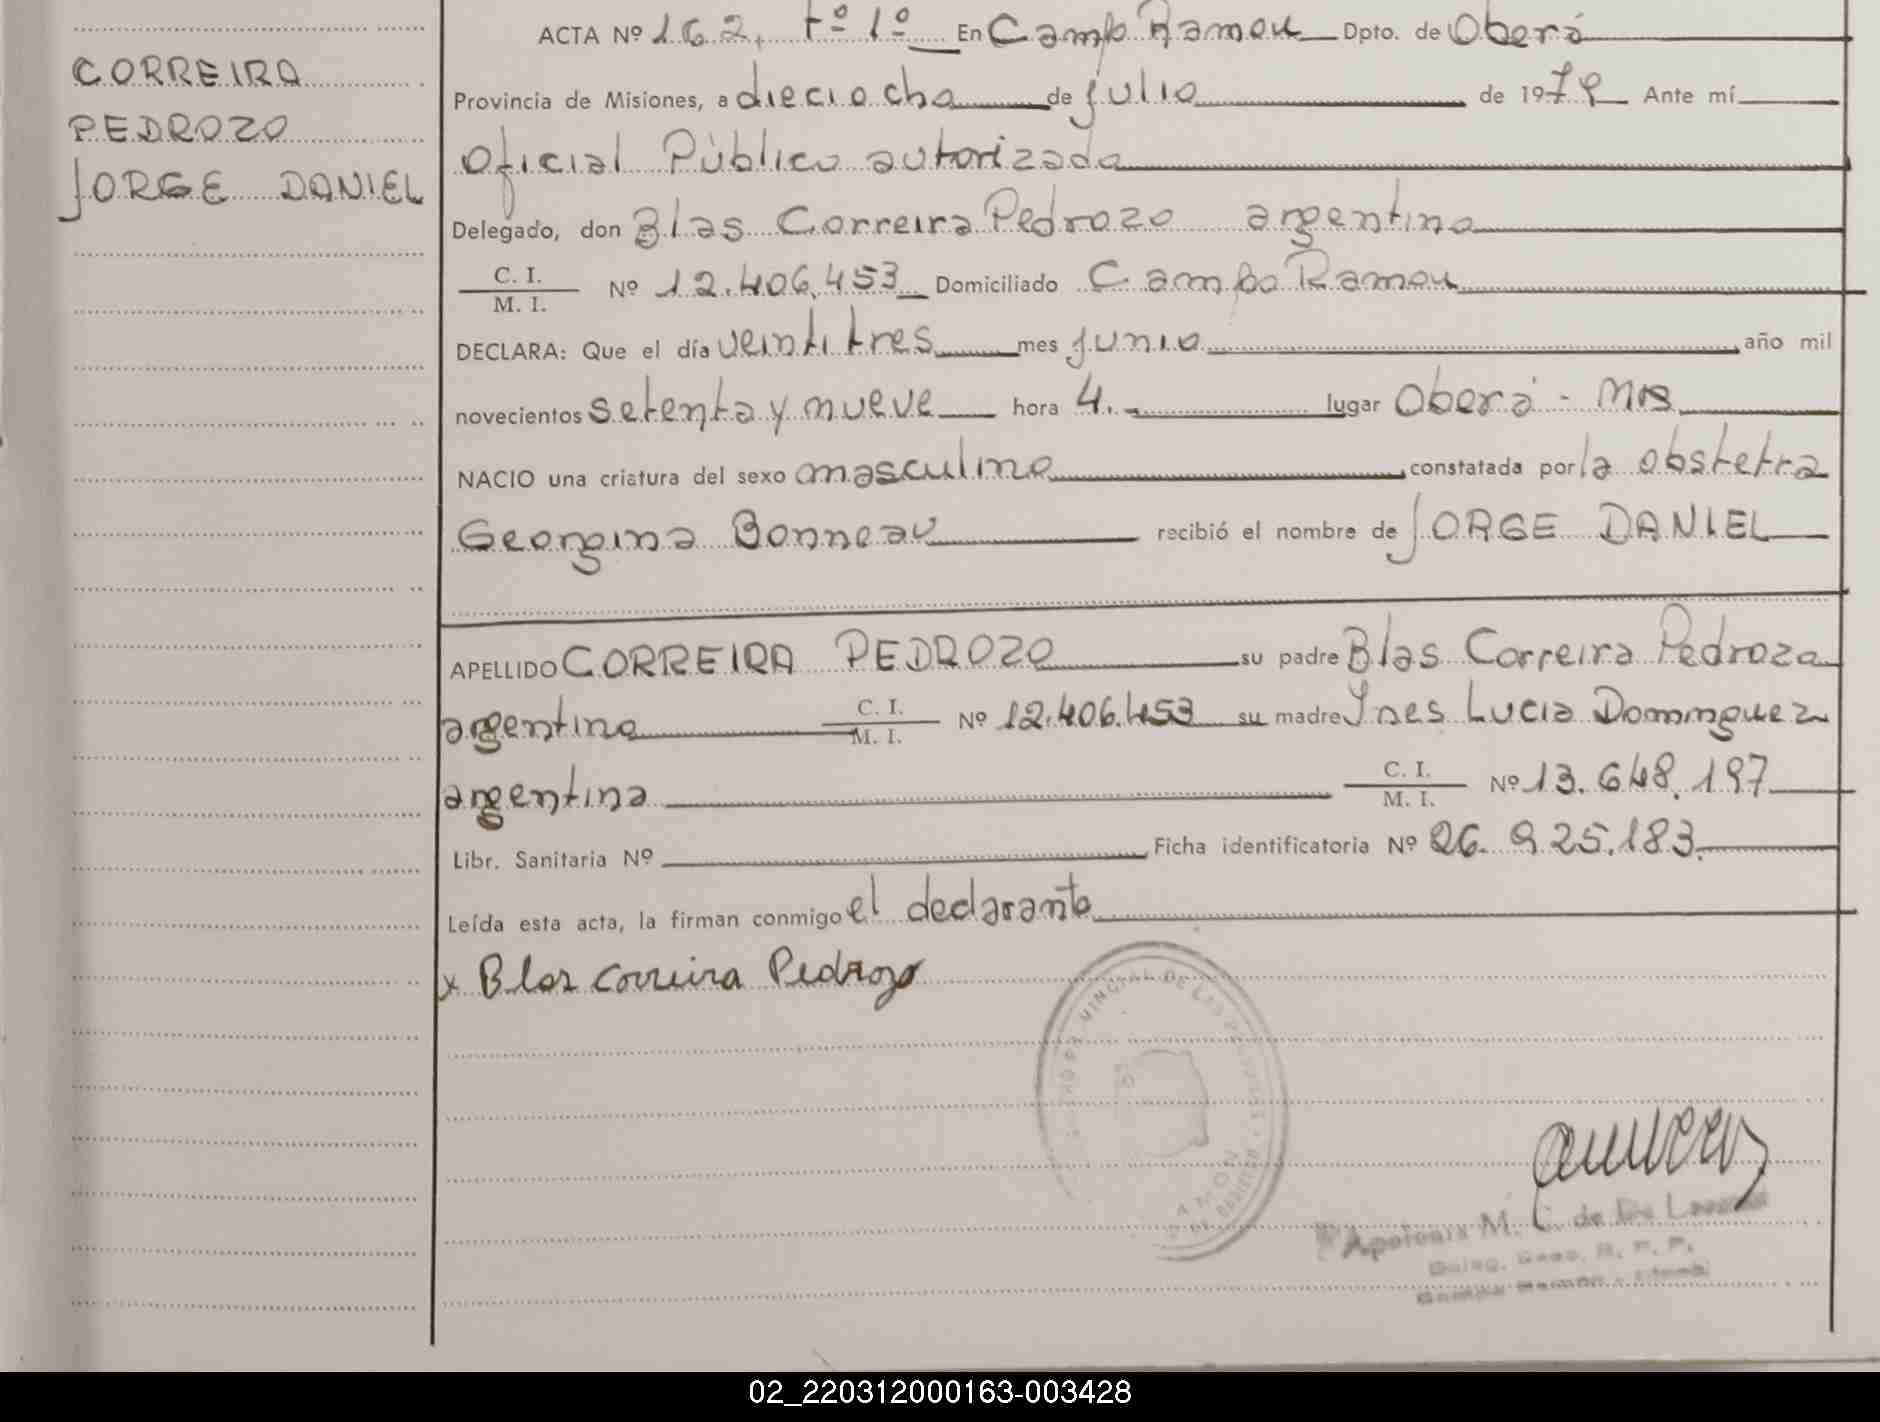 CORREIRA
PEDROZO
JORGE DANIEL
ACTA Nº 162, tº 1º En Campo Ramon Dpto. de Oberá
Provincia de Misiones, a dieciocho de julio de 1979 Ante mí
Oficial Público autorizado
Delegado, don Blas Correira Pedrozo argentino
C. I.
M. I. Nº 12.406.453 Domiciliado Campo Ramon
DECLARA: Que el día veintitres mes junio año mil
novecientos setenta y nueve hora 4. lugar Oberá - Mis
NACIO una criatura del sexo masculino constatada por la obstetra
Georgina Bonneau recibió el nombre de JORGE DANIEL
APELLIDO CORREIRA PEDROZO su padre Blas Correira Pedrozo
argentino C. I.
M. I. Nº 12.406.453 su madre Ynes Lucia Dominguez
argentina C. I.
M. I. Nº 13.648.197
Libr. Sanitaria Nº Ficha identificatoria Nº 26.925.183.
Leída esta acta, la firman conmigo el declarante
x Blas Correira Pedrozo
VINCIAL DE LAS
AMON
Apolonia M. C. de De
02_220312000163-003428